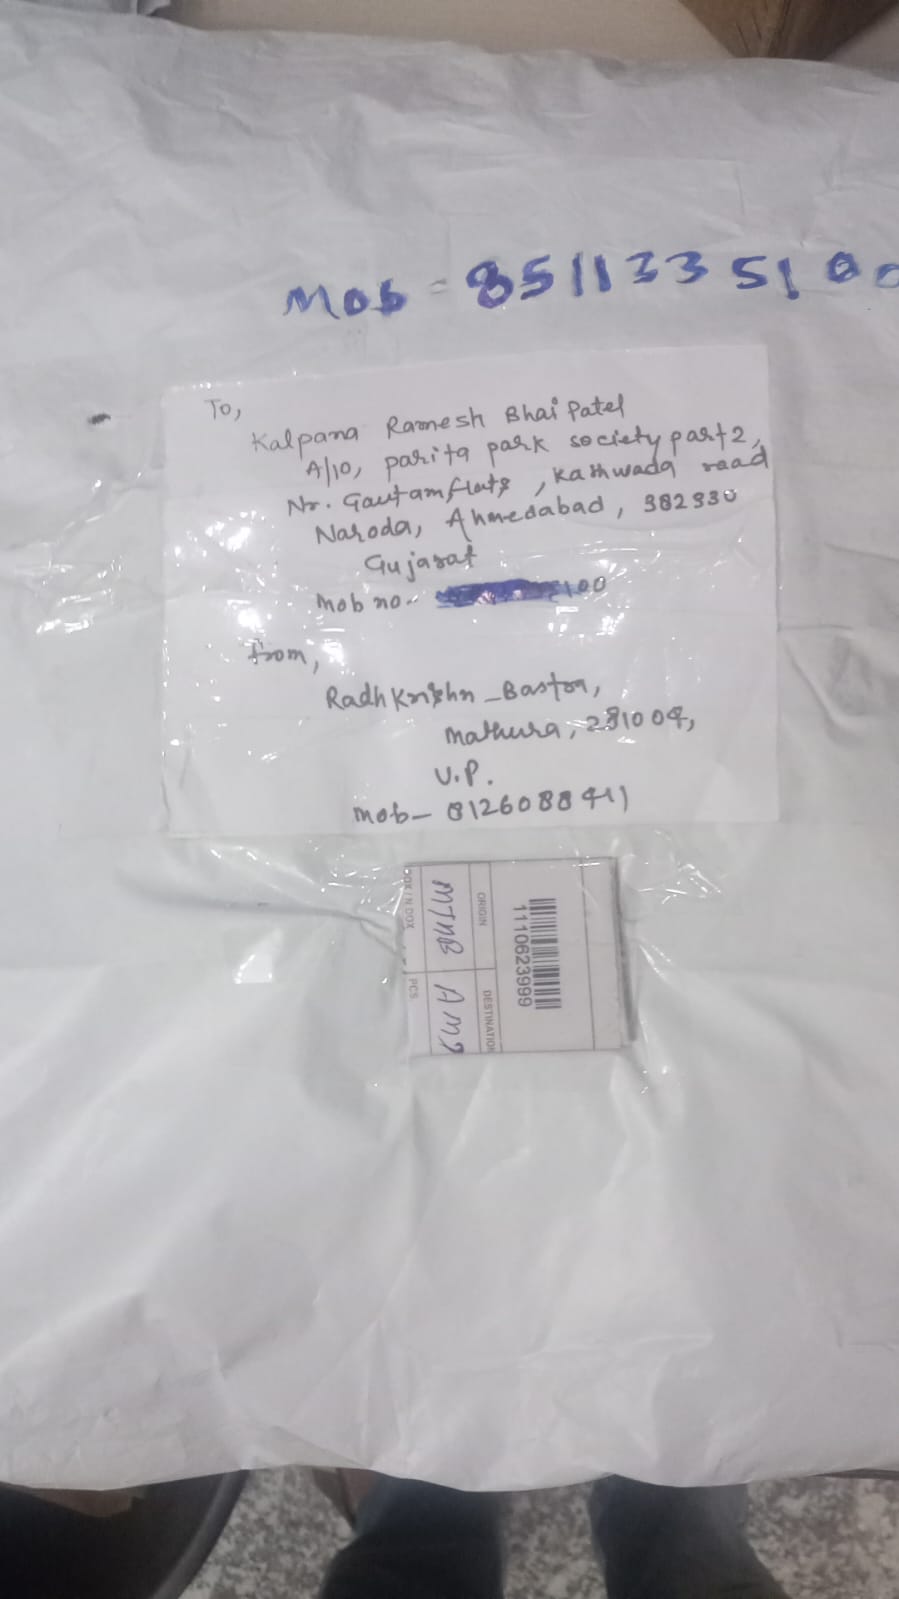 Mob = 85113351 00
To,
Kalpana Ramesh Bhai Patel
A/10, parita park society part 2,
Nr. Gautam flats, Kathwada road
Naroda, Ahmedabad, 382330
Gujarat
Mob no.. 100
from,
Radh Krishn
Mathura, 281004,
U.P.
mob- 8126088411
ORIGIN
DESTINATION
1110623999
MTNB
AMD
N DOX
PCS.